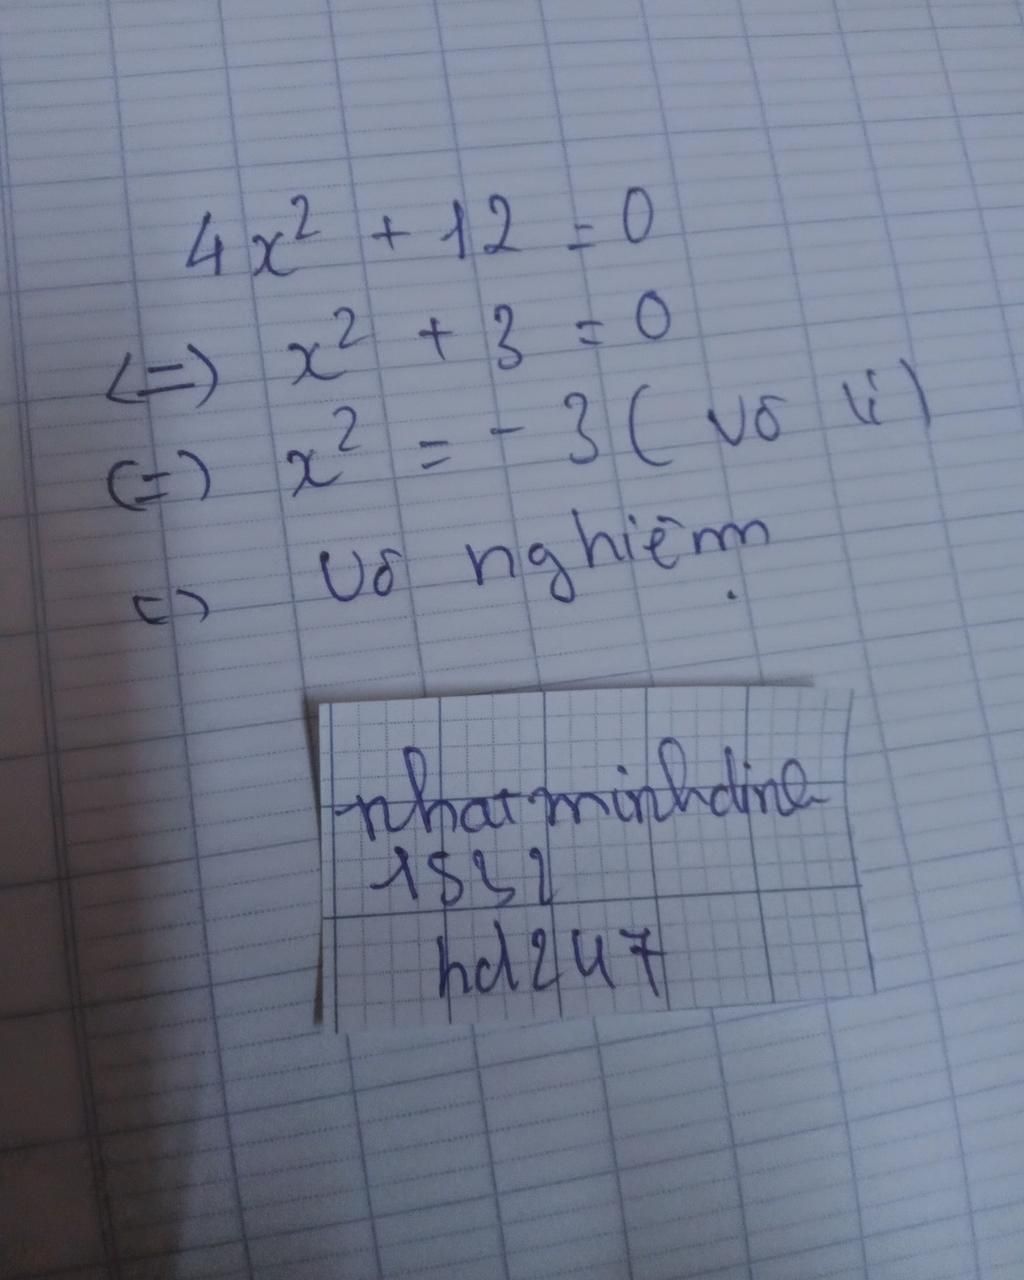 4x² + 12 = 0
<=> x² + 3 = 0
(=) x² = - 3 ( vô lí )
<=> Vô nghiệm
nhatminhdine
1532
hd247